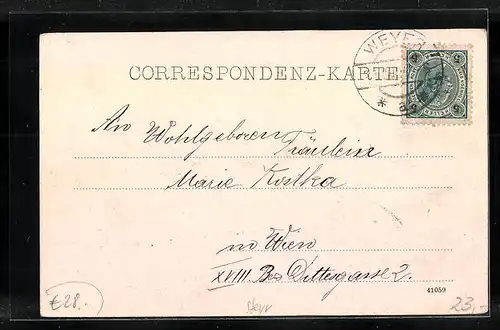 WEYER
CORRESPONDENZ-KARTE
5 5
5 5
An Wohlgeboren
Fräulein
Marie Kostka
in Wien
XVIII. Bez Dittesgasse 2.
41059
€28.-
23,-